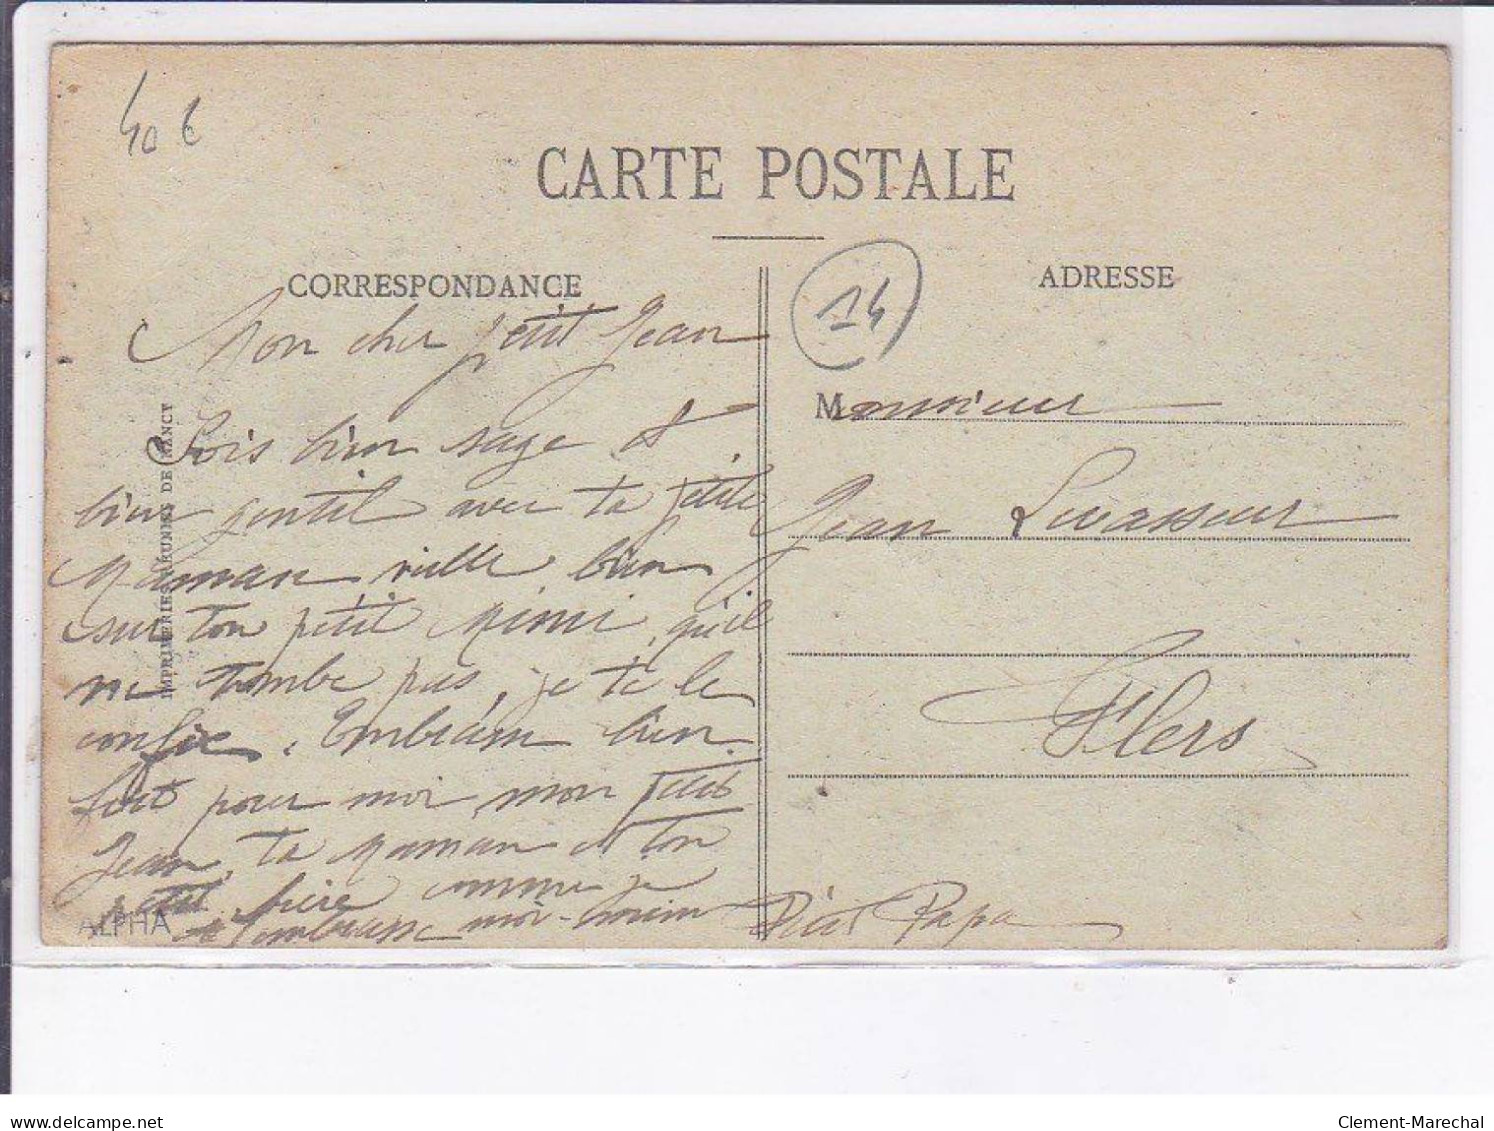 40 €
CARTE POSTALE
CORRESPONDANCE
ADRESSE
14
Mon cher petit Jean
Sois bien sage et
bien gentil avec ta petite
Maman veille bien
sur ton petit Mimi, qu'il
ne tombe pas, je te le
confie. Embrasse bien
fort pour moi mon petit
Jean, ta Maman et ton
petit frère comme je
t'embrasse moi-même
Papa
Monsieur
Jean Levasseur
Flers
IMPRIMERIES RÉUNIES DE NANCY
ALPHA
www.delcampe.net
Clement-Marechal